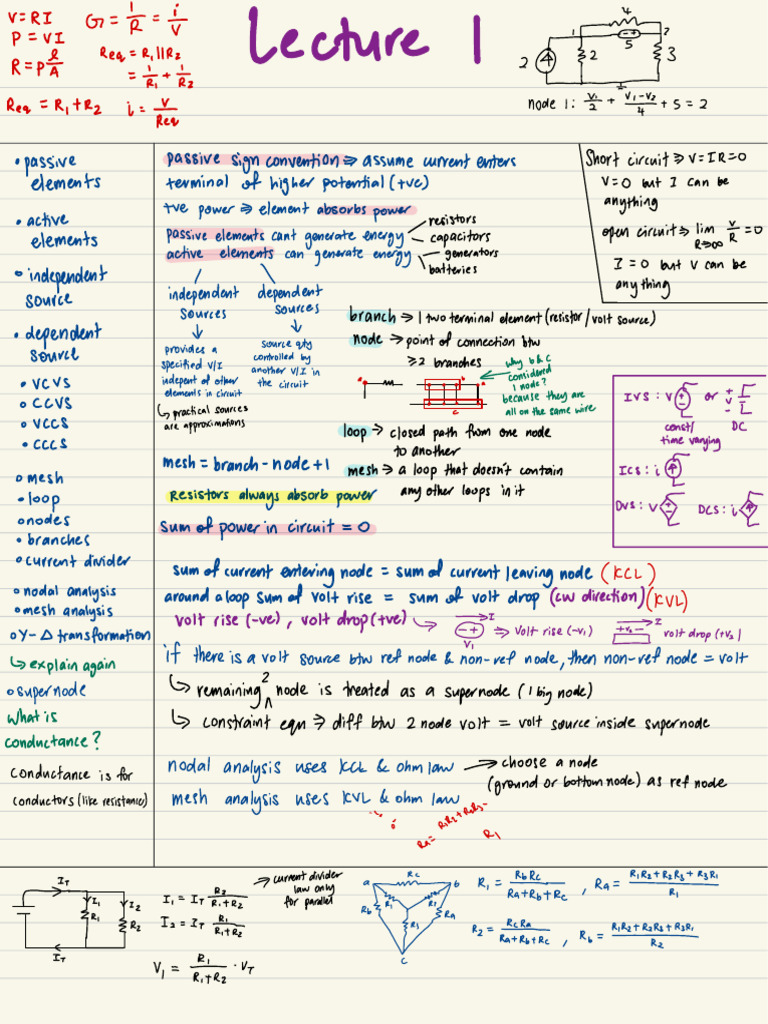 Lecture 1
V=RI
P = VI
R = ρ l/A
Req = R1+R2
G = 1/R = i/V
Req = R1||R2
= 1/R1 + 1/R2
i = V/Req
4
1
2
5
2
2
3
node 1: V1/2 + (V1-V2)/4 + 5 = 2
• passive elements
• active elements
• independent source
• dependent source
• VCVS
○ CCVS
• VCCS
• CCCS
○ mesh
• loop
○ nodes
• branches
○ current divider
○ nodal analysis
○ mesh analysis
○ Y-Δ transformation
↳ explain again
○ supernode
What is
conductance?
Conductance is for
conductors (like resistance)
passive sign convention ⇒ assume current enters
terminal of higher potential (+ve)
+ve power ⇒ element absorbs power
passive elements cant generate energy
resistors
capacitors
active elements can generate energy
generators
batteries
independent
sources
↓
provides a
specified V/I
indepent of other
elements in circuit
↳ practical sources
are approximations
dependent
sources
↓
source qty
controlled by
another V/I in
the circuit
Short circuit ⇒ V=IR=0
V=0 but I can be
anything
open circuit ⇒ lim R→∞ V/R = 0
I=0 but V can be
anything
branch → 1 two terminal element (resistor/volt source)
node → point of connection btw
≥2 branches
A
B
B
A
C
why b & c
considered
1 node?
because they are
all on the same wire
loop → closed path from one node
to another
mesh → a loop that doesn't contain
any other loops in it
mesh = branch - node + 1
Resistors always absorb power
sum of power in circuit = 0
IVS: V + - or + V - DC
const/
time varying
ICS: i
DVS: V + - DCS: i
sum of current entering node = sum of current leaving node (KCL)
around a loop sum of volt rise = sum of volt drop (cw direction) (KVL)
volt rise (-ve), volt drop (+ve) ↳ I + - V1 ⇒ volt rise (-V1) I +V2- volt drop (+V2)
if there is a volt source btw ref node & non-ref node, then non-ref node = volt
↳ remaining 2 ^ node is treated as a supernode (1 big node)
↳ constraint eqn ⇒ diff btw 2 node volt = volt source inside supernode
nodal analysis uses KCL & ohm law → choose a node
(ground or bottom node) as ref node
mesh analysis uses KVL & ohm law
RA = R1R2 + R2R3
R1
IT
I1
R1
I2
R2
IT
I1 = IT R2/(R1+R2)
I2 = IT R1/(R1+R2)
→ current divider
law only
for parallel
V1 = R1/(R1+R2) · VT
a
Rc
b
R1
R2
Rb
R3
RA
c
R1 = RbRc/(RA+Rb+Rc) , RA = (R1R2+R2R3+R3R1)/R1
R2 = RcRa/(RA+Rb+Rc) , Rb = (R1R2+R2R3+R3R1)/R2